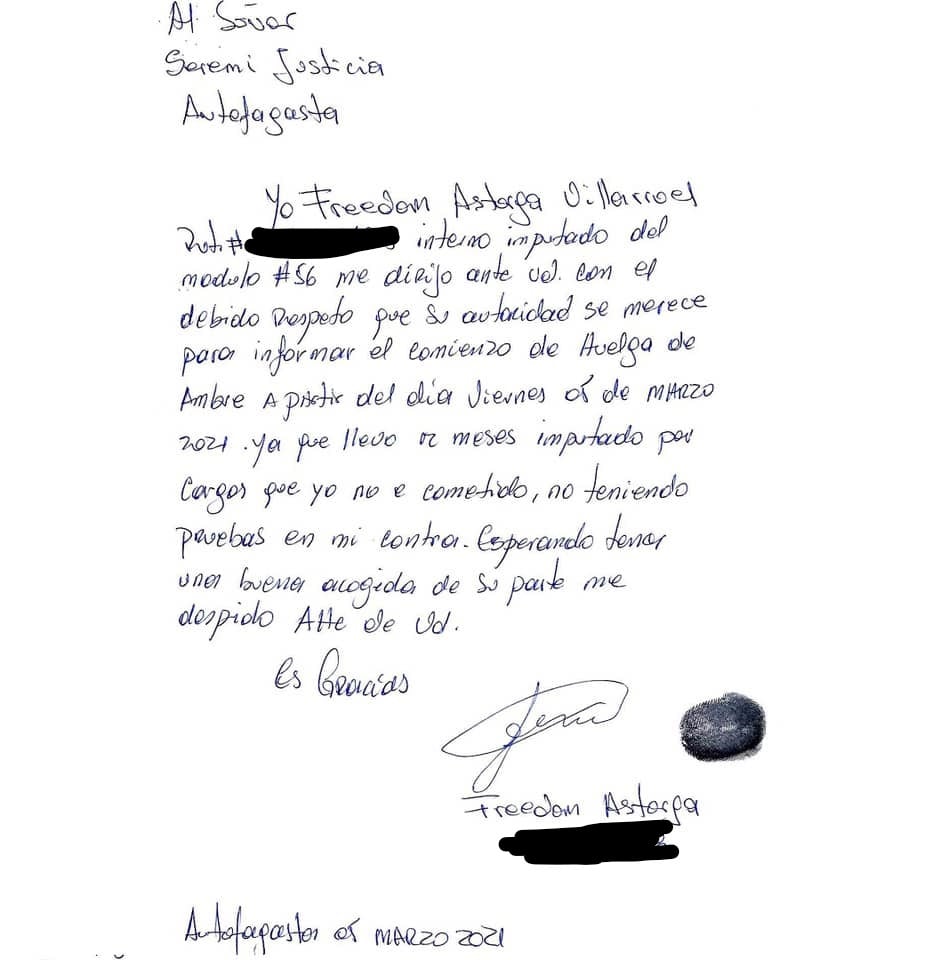 Al Señor
Seremi Justicia
Antofagasta
Yo Freedom Astorga Villarroel
Rut. # interno imputado del
modulo #56 me dirijo ante ud. con el
debido Respeto que Su autoridad se merece
para informar el comienzo de Huelga de
Ambre A pArtir del día Viernes 05 de MARZO
2021. ya que llevo 12 meses imputado por
Cargos que yo no e cometido, no teniendo
pruebas en mi contra. Esperando tener
una buena acogida de Su parte me
despido Atte de Ud.
Es Gracias
Freedom Astorga
Antofagasta 05 MARZO 2021